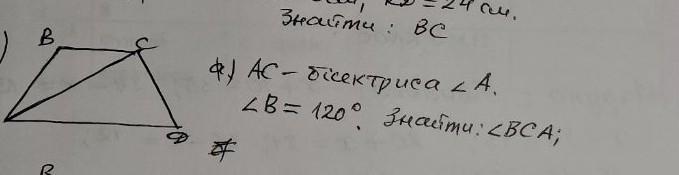 = 24 см.
Знайти : BC
)
B
C
D
a) AC – бісектриса ∠ A.
∠B = 120°. Знайти: ∠BCA;
B